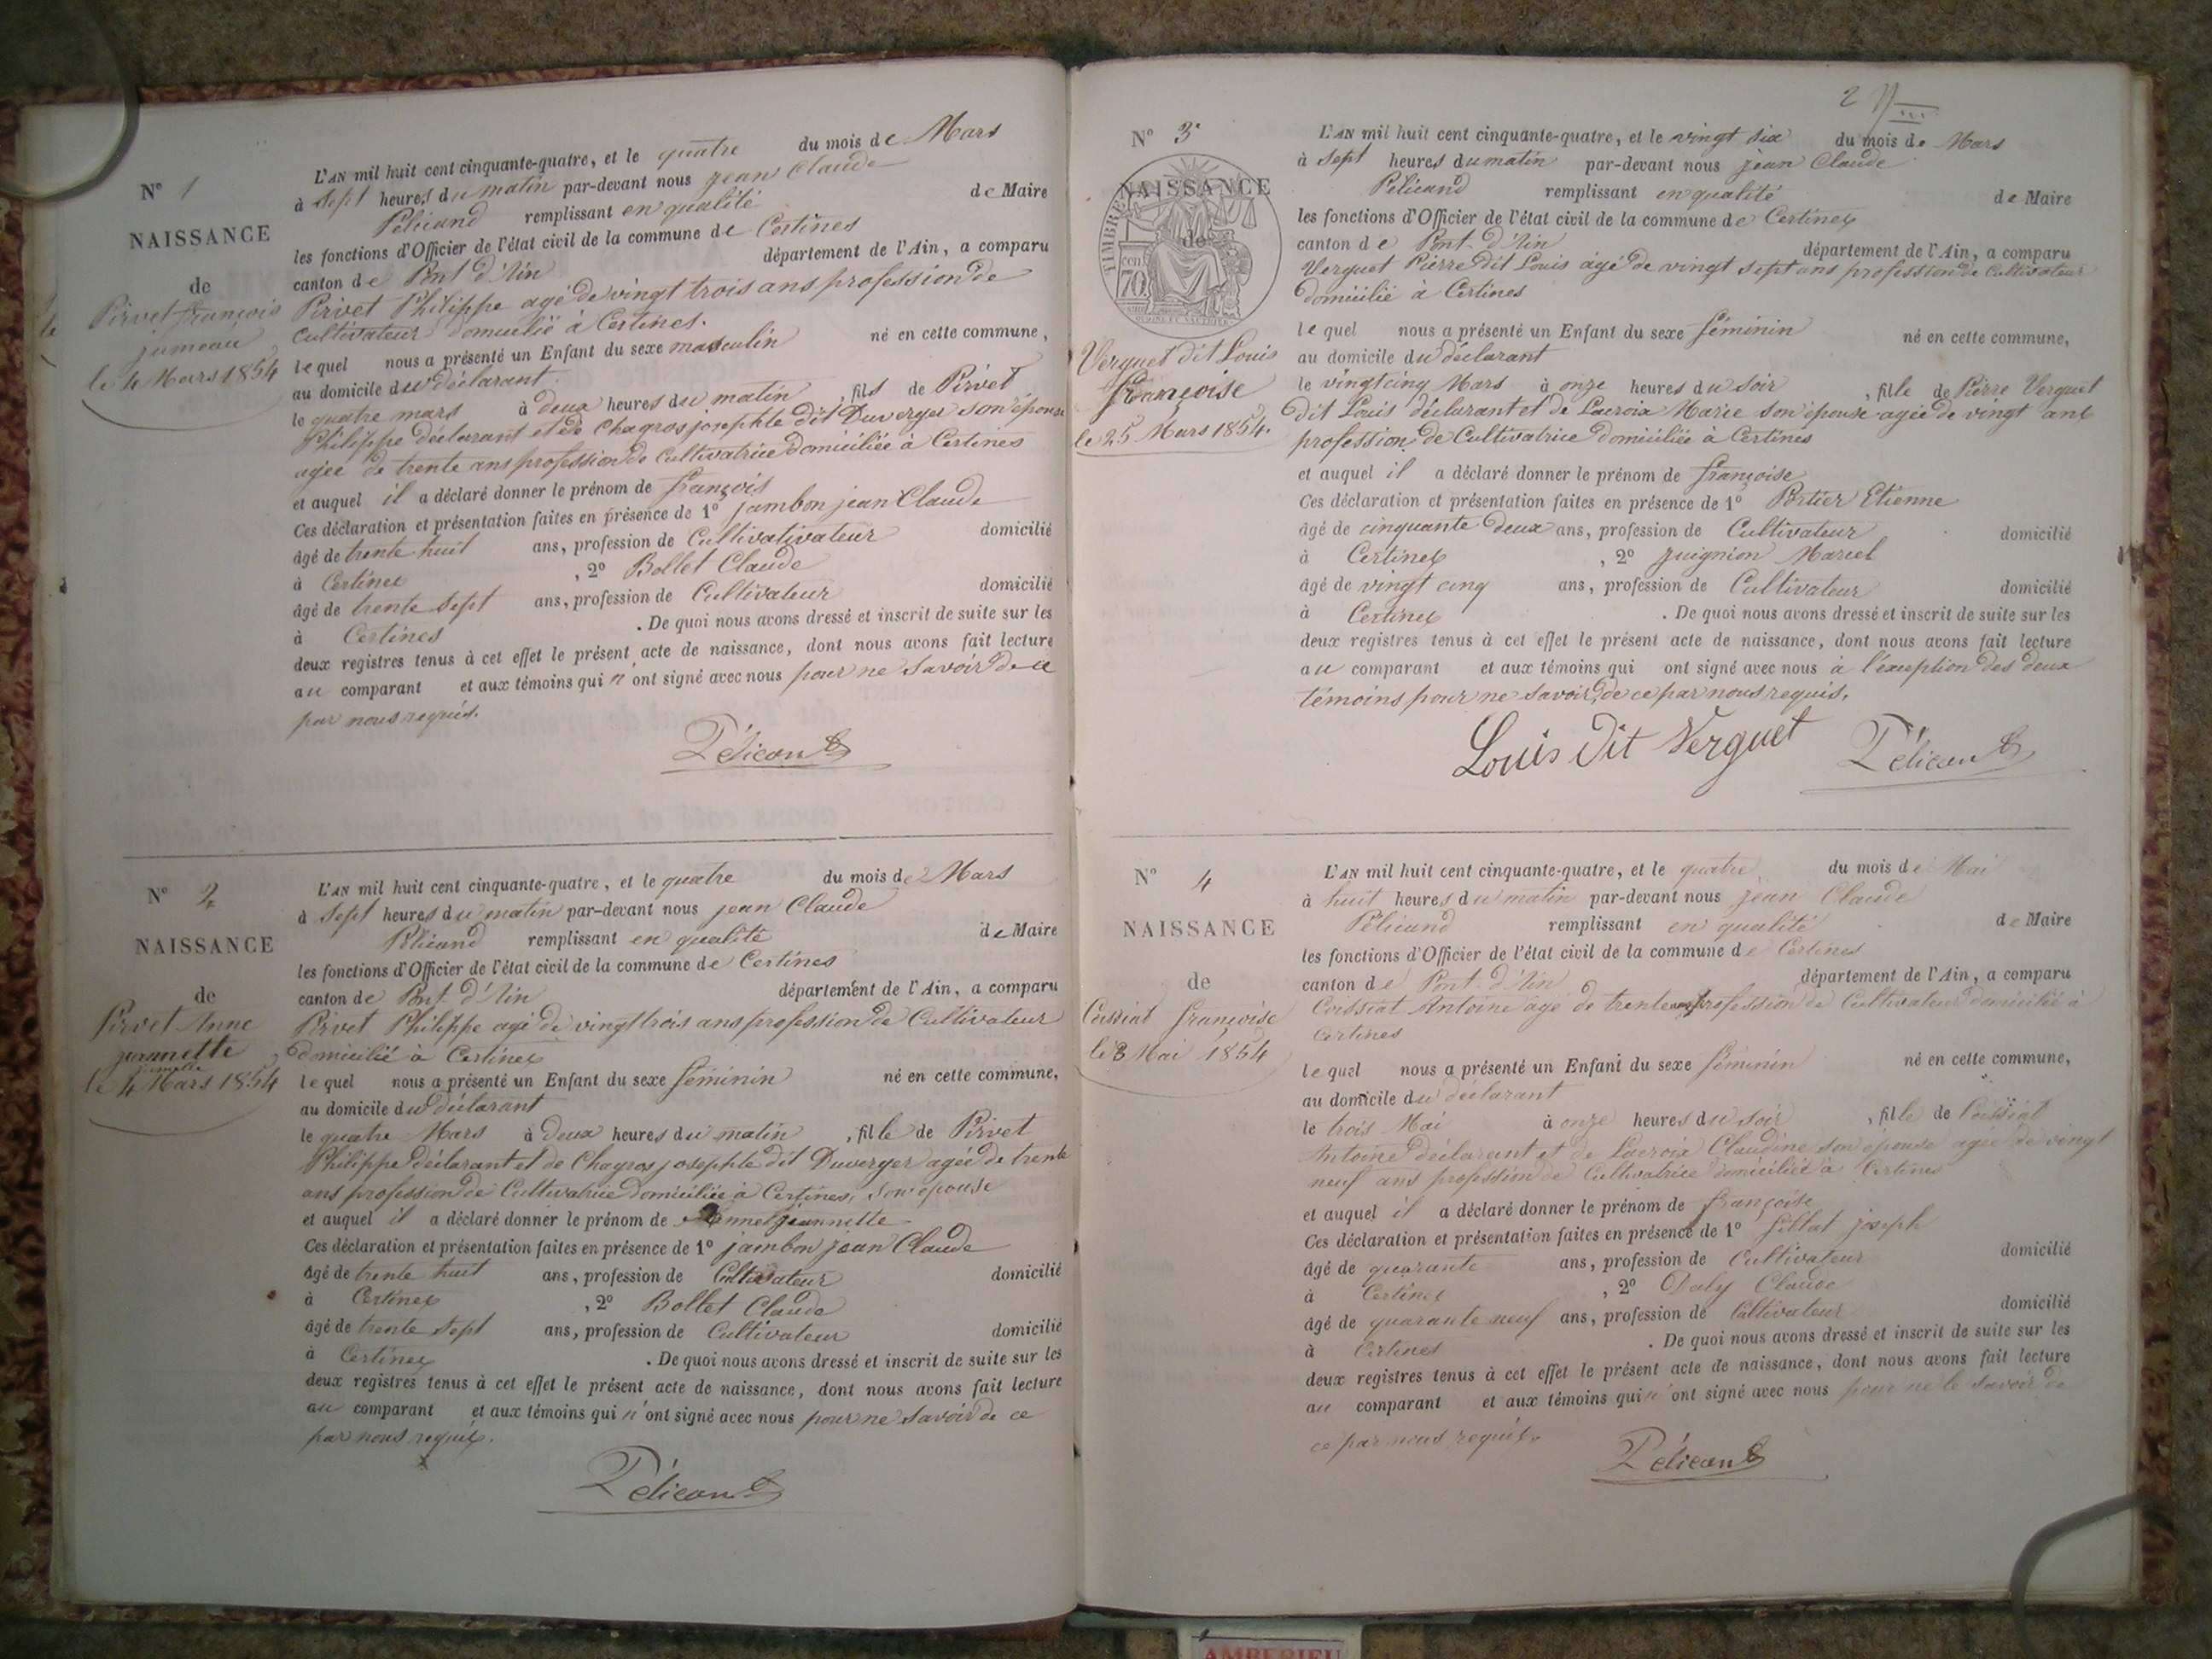 N° 1
NAISSANCE
de
Pirvet françois
jumeau
le 4 Mars 1854
L'AN mil huit cent cinquante-quatre, et le quatre du mois de Mars
à sept heures du matin par-devant nous jean Claude
Pélicand remplissant en qualité de Maire
les fonctions d'Officier de l'état civil de la commune de Certines
canton de Pont d'Ain département de l'Ain, a comparu
Pirvet Philippe agé de vingt trois ans profession de
Cultivateur domicilié à Certines.
lequel nous a présenté un Enfant du sexe masculin né en cette commune,
au domicile du déclarant
le quatre mars à deux heures du matin, fils de Pirvet
Philippe déclarant et de Chagros josephte dit Duverger son épouse
agée de trente ans profession de Cultivatrice domiciliée à Certines
et auquel il a déclaré donner le prénom de françois
Ces déclaration et présentation faites en présence de 1° jambon jean Claude
âgé de trente huit ans, profession de Cultivativateur domicilié
à Certines, 2° Bollet Claude
âgé de trente sept ans, profession de Cultivateur domicilié
à Certines. De quoi nous avons dressé et inscrit de suite sur les
deux registres tenus à cet effet le présent acte de naissance, dont nous avons fait lecture
au comparant et aux témoins qui n'ont signé avec nous pour ne savoir de ce
par nous requis.
Pélicand
N° 2
NAISSANCE
de
Pirvet Anne
jeannette
jumelle
le 4 Mars 1854
L'AN mil huit cent cinquante-quatre, et le quatre du mois de Mars
à sept heures du matin par-devant nous jean Claude
Pélicand remplissant en qualité de Maire
les fonctions d'Officier de l'état civil de la commune de Certines
canton de Pont d'Ain département de l'Ain, a comparu
Pirvet Philippe agé de vingt trois ans profession de Cultivateur
domicilié à Certines
lequel nous a présenté un Enfant du sexe féminin né en cette commune,
au domicile du déclarant
le quatre Mars à deux heures du matin, fille de Pirvet
Philippe déclarant et de Chagros josephte dit Duverger agée de trente
ans profession de Cultivatrice domiciliée à Certines, son épouse
et auquel il a déclaré donner le prénom de Anne jeannette
Ces déclaration et présentation faites en présence de 1° jambon jean Claude
âgé de trente huit ans, profession de Cultivateur domicilié
à Certines, 2° Bollet Claude
âgé de trente sept ans, profession de Cultivateur domicilié
à Certines. De quoi nous avons dressé et inscrit de suite sur les
deux registres tenus à cet effet le présent acte de naissance, dont nous avons fait lecture
au comparant et aux témoins qui n'ont signé avec nous pour ne savoir de ce
par nous requis.
Pélicand
2
N° 3
NAISSANCE
de
TIMBRE
cen.
70
Verguet dit Louis
françoise
le 25 Mars 1854.
L'AN mil huit cent cinquante-quatre, et le vingt six du mois de Mars
à sept heures du matin par-devant nous jean Claude
Pélicand remplissant en qualité de Maire
les fonctions d'Officier de l'état civil de la commune de Certines
canton de Pont d'Ain département de l'Ain, a comparu
Verguet Pierre dit Louis agé de vingt sept ans profession de Cultivateur
domicilié à Certines
lequel nous a présenté un Enfant du sexe féminin né en cette commune,
au domicile du déclarant
le vingt cinq Mars à onze heures du soir, fille de Pierre Verguet
dit Louis déclarant et de Lacroix Marie son épouse agée de vingt ans
profession de Cultivatrice domiciliée à Certines
et auquel il a déclaré donner le prénom de françoise
Ces déclaration et présentation faites en présence de 1° Portier Etienne
âgé de cinquante deux ans, profession de Cultivateur domicilié
à Certines, 2° juignion Marcel
âgé de vingt cinq ans, profession de Cultivateur domicilié
à Certines. De quoi nous avons dressé et inscrit de suite sur les
deux registres tenus à cet effet le présent acte de naissance, dont nous avons fait lecture
au comparant et aux témoins qui ont signé avec nous à l'éxception des deux
témoins pour ne savoir de ce par nous requis.
Louis dit Verguet Pélicand
N° 4
NAISSANCE
de
Coissiat françoise
le 3 Mai 1854
L'AN mil huit cent cinquante-quatre, et le quatre du mois de Mai
à huit heures du matin par-devant nous jean Claude
Pélicand remplissant en qualité de Maire
les fonctions d'Officier de l'état civil de la commune de Certines
canton de Pont d'Ain département de l'Ain, a comparu
Coissiat Antoine agé de trente ans profession de Cultivateur domicilié à
Certines
lequel nous a présenté un Enfant du sexe féminin né en cette commune,
au domicile du déclarant
le trois Mai à onze heures du soir, fille de Coissiat
Antoine déclarant et de Lacroix Claudine son épouse agée de vingt
neuf ans profession de Cultivatrice domiciliée à Certines
et auquel il a déclaré donner le prénom de françoise
Ces déclaration et présentation faites en présence de 1° joseph
âgé de quarante ans, profession de Cultivateur domicilié
à Certines, 2° Daly Claude
âgé de quarante neuf ans, profession de Cultivateur domicilié
à Certines. De quoi nous avons dressé et inscrit de suite sur les
deux registres tenus à cet effet le présent acte de naissance, dont nous avons fait lecture
au comparant et aux témoins qui n'ont signé avec nous pour ne le savoir de
ce par nous requis.
Pélicand
AMBERIEU